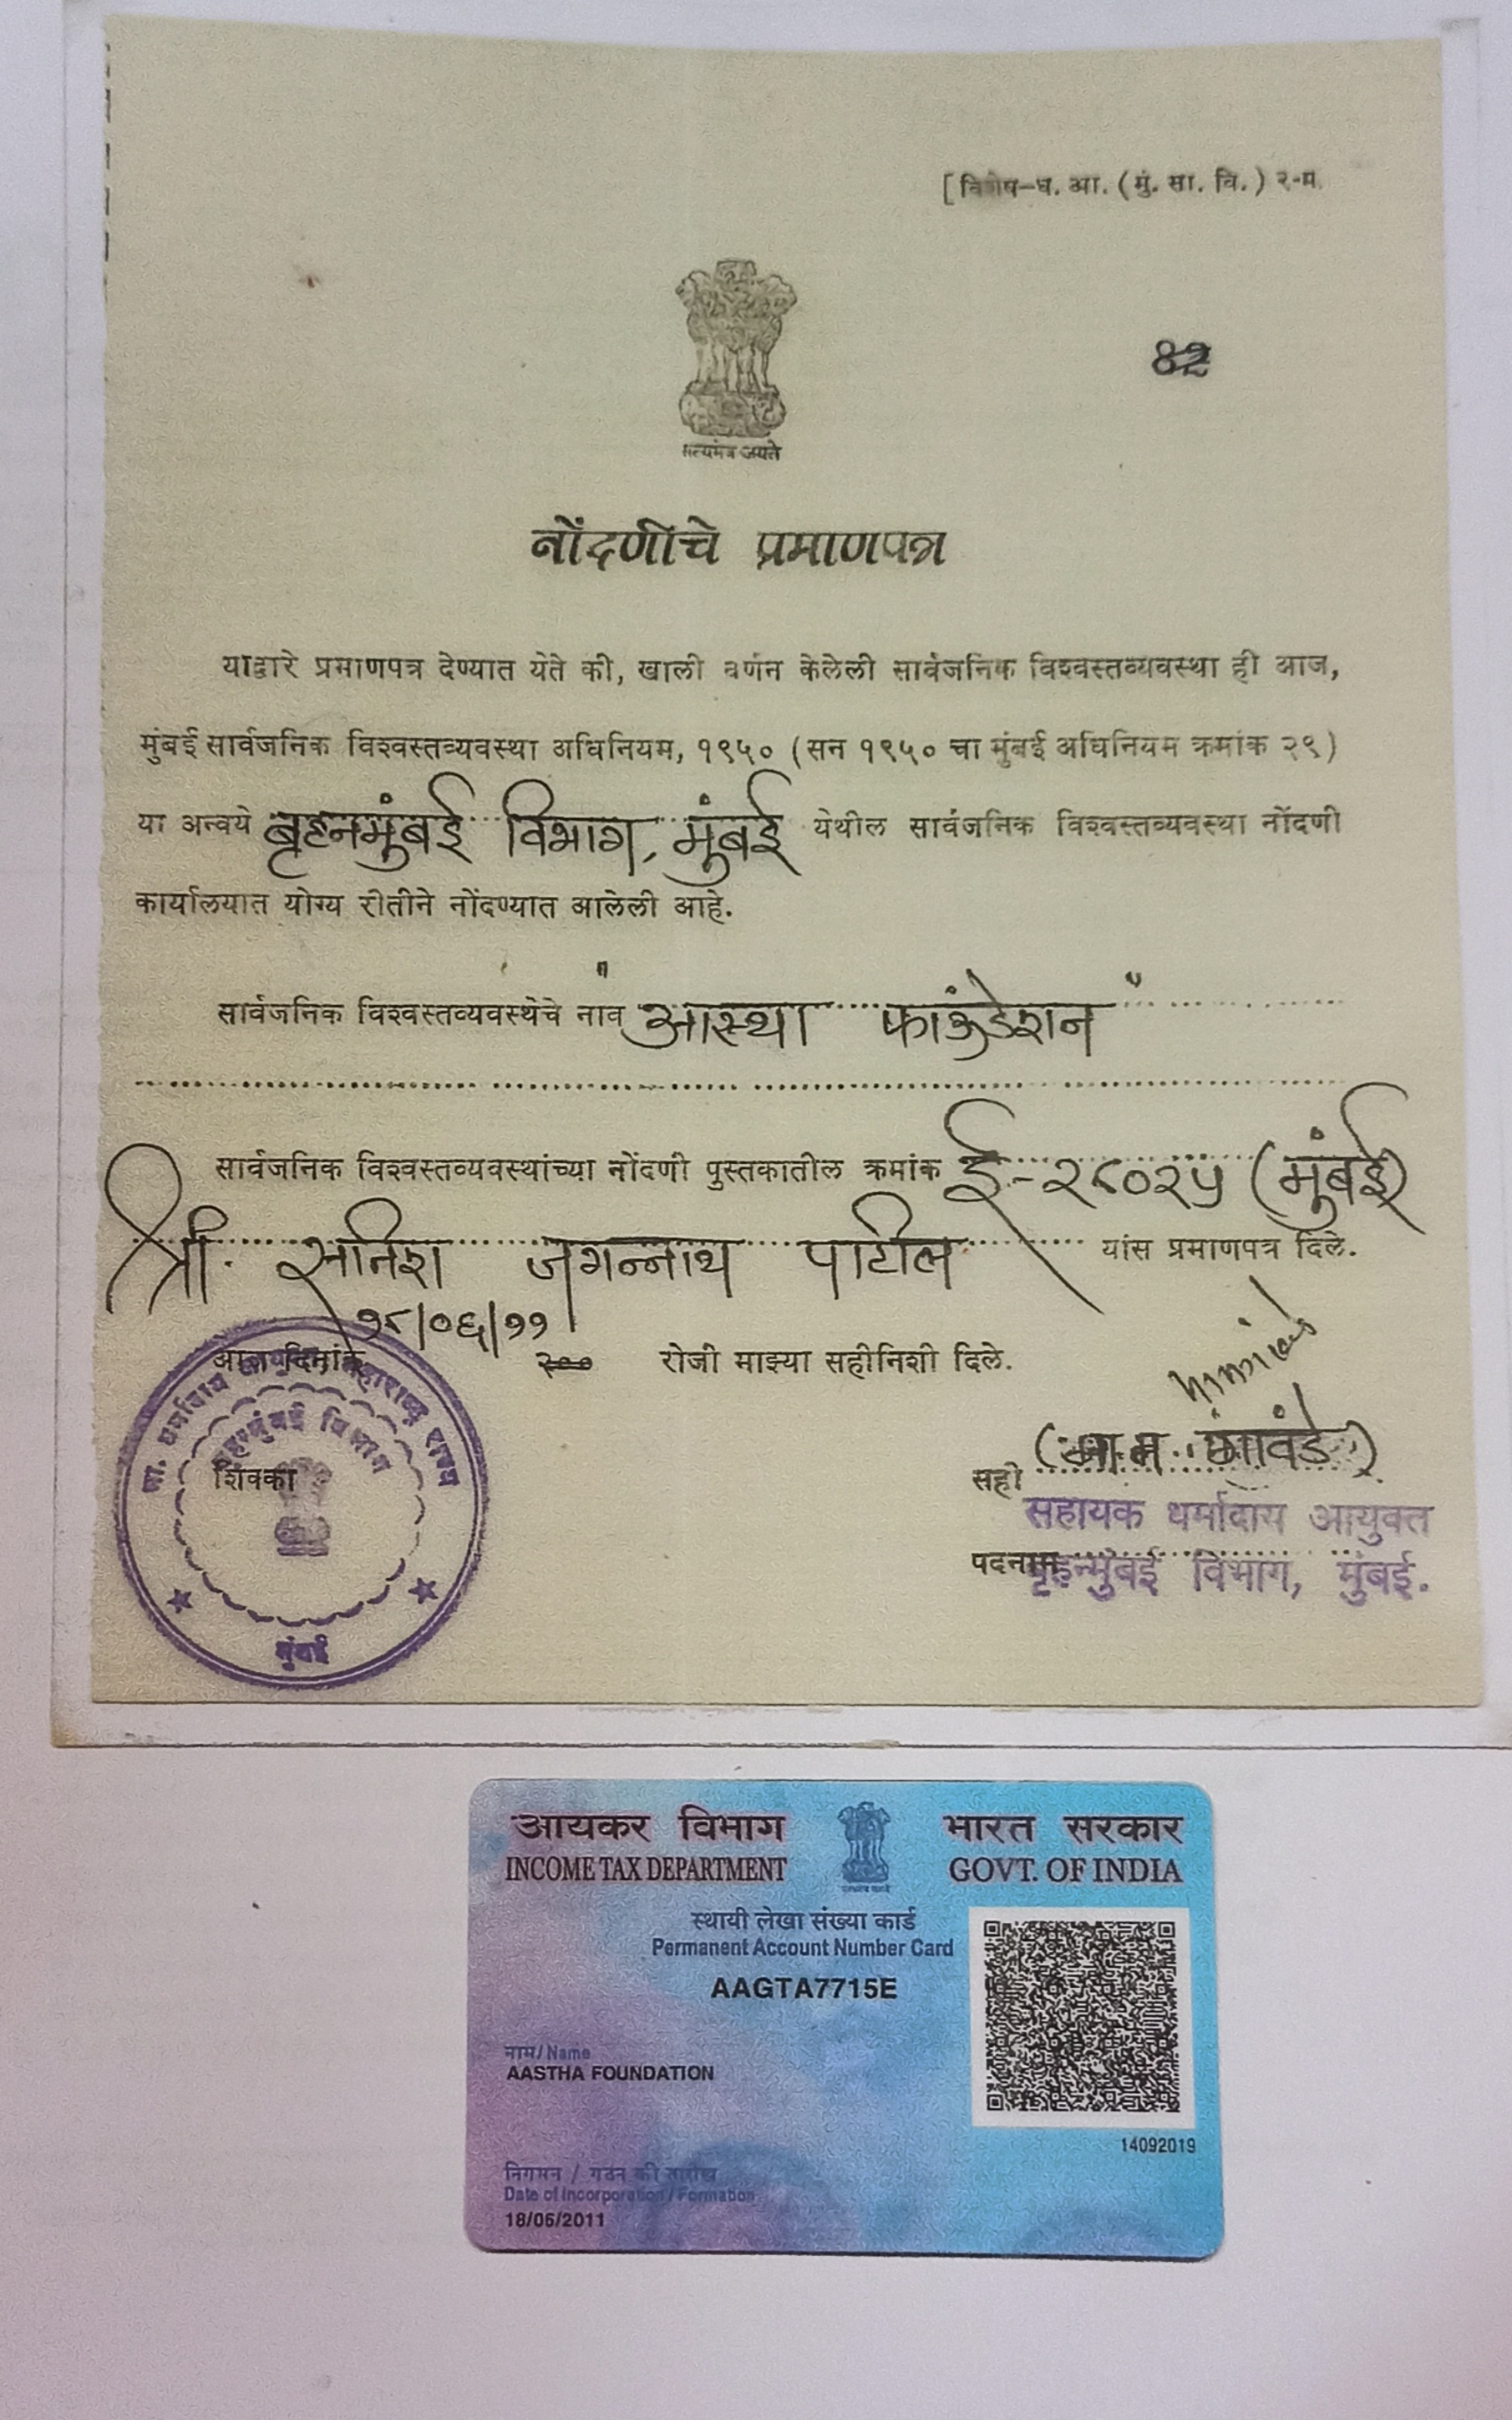 [ विशेष-ध. आ. (मुं. सा. वि.) २-म.
82
सत्यमेव जयते
नोंदणीचे प्रमाणपत्र
याद्वारे प्रमाणपत्र देण्यात येते की, खाली वर्णन केलेली सार्वजनिक विश्वस्तव्यवस्था ही आज,
मुंबई सार्वजनिक विश्वस्तव्यवस्था अधिनियम, १९५० (सन १९५० चा मुंबई अधिनियम क्रमांक २९)
या अन्वये बृहन्मुंबई विभाग, मुंबई येथील सार्वजनिक विश्वस्तव्यवस्था नोंदणी
कार्यालयात योग्य रीतीने नोंदण्यात आलेली आहे.
सार्वजनिक विश्वस्तव्यवस्थेचे नाव "आस्था फाऊंडेशन"
सार्वजनिक विश्वस्तव्यवस्थांच्या नोंदणी पुस्तकातील क्रमांक ई-२८०२५ (मुंबई)
श्री. जगन्नाथ पाटील यांस प्रमाणपत्र दिले.
१८/०६/११
आज दिनांक २०० रोजी माझ्या सहीनिशी दिले.
धर्मादाय आयुक्त महाराष्ट्र राज्य
बृहन्मुंबई विभाग
शिक्का
मुंबई
सही
सहायक धर्मादाय आयुक्त
पदनाम बृहन्मुंबई विभाग, मुंबई.
आयकर विभाग भारत सरकार
INCOME TAX DEPARTMENT GOVT. OF INDIA
स्थायी लेखा संख्या कार्ड
Permanent Account Number Card
AAGTA7715E
नाम/Name
AASTHA FOUNDATION
14092019
निगमन / गठन की तारीख
Date of Incorporation / Formation
18/06/2011